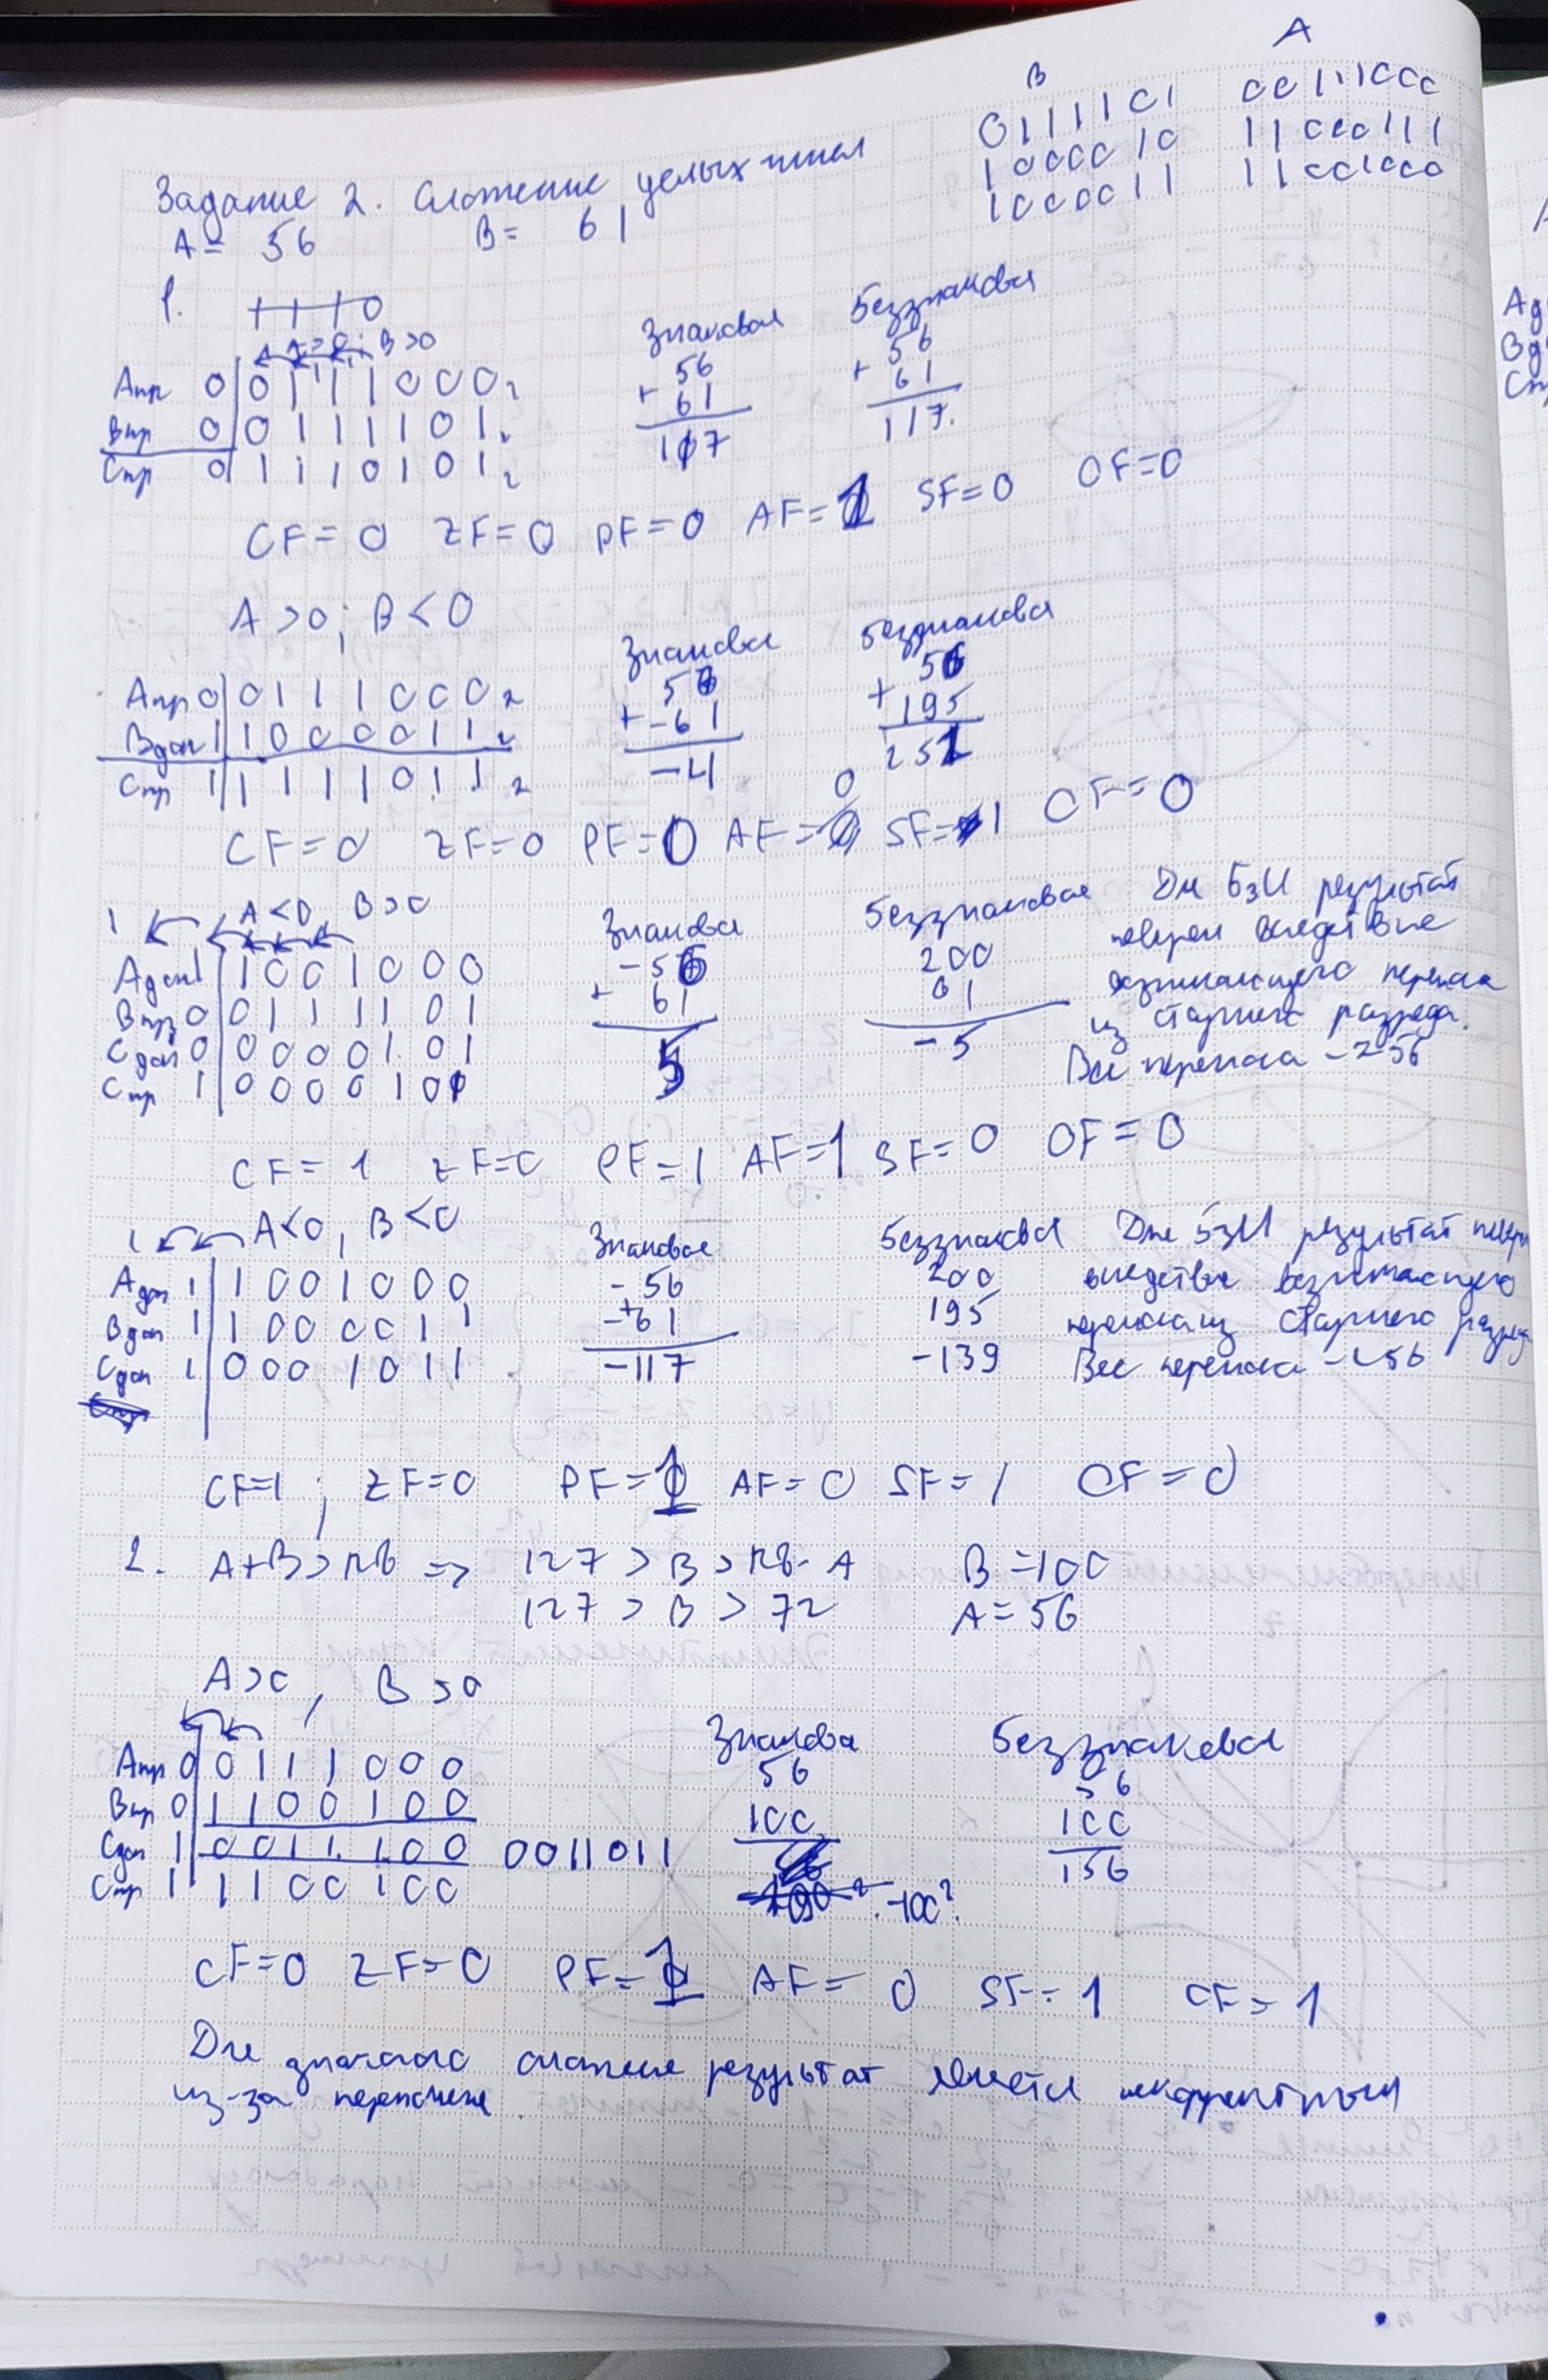 B A
0111101 00111000
1000010 11000111
1000011 11001000
Задание 2. Сложение целых чисел
A = 56 B = 61
1.
B>0
Апр 0 0111000₂
Впр 0 0111101₂
Спр 0 1110101₂
Знаковая
56
+ 61
117
Беззнаковая
56
+ 61
117.
CF=0 ZF=0 PF=0 AF=1 SF=0 OF=0
A>0; B<0
Апр 0 0111000₂
Вдоп 1 1000011₂
Спр 1 1111011₂
Знаковая
56
+ -61
-4
Беззнаковая
56
+ 195
251
CF=0 ZF=0 PF=0 AF=0 SF=1 OF=0
1 A<0, B>0
Адоп 1 1001000
Впр 0 0111101
Сдоп 0 0000101
Спр 1 0000101
Знаковая
-56
+ 61
5
Беззнаковая
200
61
-5
Для БзИ результат
неверен вследствие
возникающего переноса
из старшего разряда.
Вес переноса -256
CF=1 ZF=0 PF=1 AF=1 SF=0 OF=0
1 A<0, B<0
Адоп 1 1001000
Вдоп 1 1000011
Сдоп 1 0001011
Знаковая
-56
+ -61
-117
Беззнаковая
200
195
-139
Для БзИ результат неверн
вследствие возникающего
переноса из старшего разряда
Вес переноса -256
CF=1; ZF=0 PF=1 AF=0 SF=1 OF=0
2. A+B>128 => 127 > B > 128-A B=100
127 > B > 72 A=56
A>0, B>0
Апр 0 0111000
Впр 0 1100100
Сдоп 1 0011100 0011011
Спр 1 1100100
Знаковая
56
100
-100?
Беззнаковая
56
100
156
CF=0 ZF=0 PF=1 AF=0 SF=1 OF=1
Для знакового сложения результат является некорректным
из-за переполнения